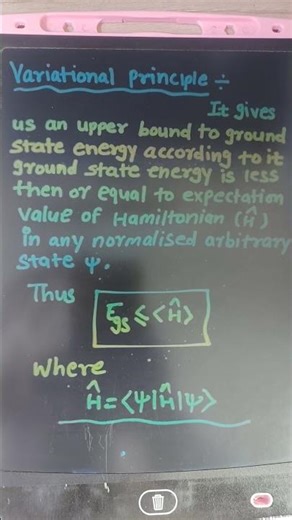 Variational Principle ÷
It gives
us an upper bound to ground
state energy according to it
ground state energy is less
then or equal to expectation
value of Hamiltonian (Ĥ)
in any normalised arbitrary
state ψ.
Thus
E_gs ≤ ⟨Ĥ⟩
Where
Ĥ = ⟨ψ|Ĥ|ψ⟩